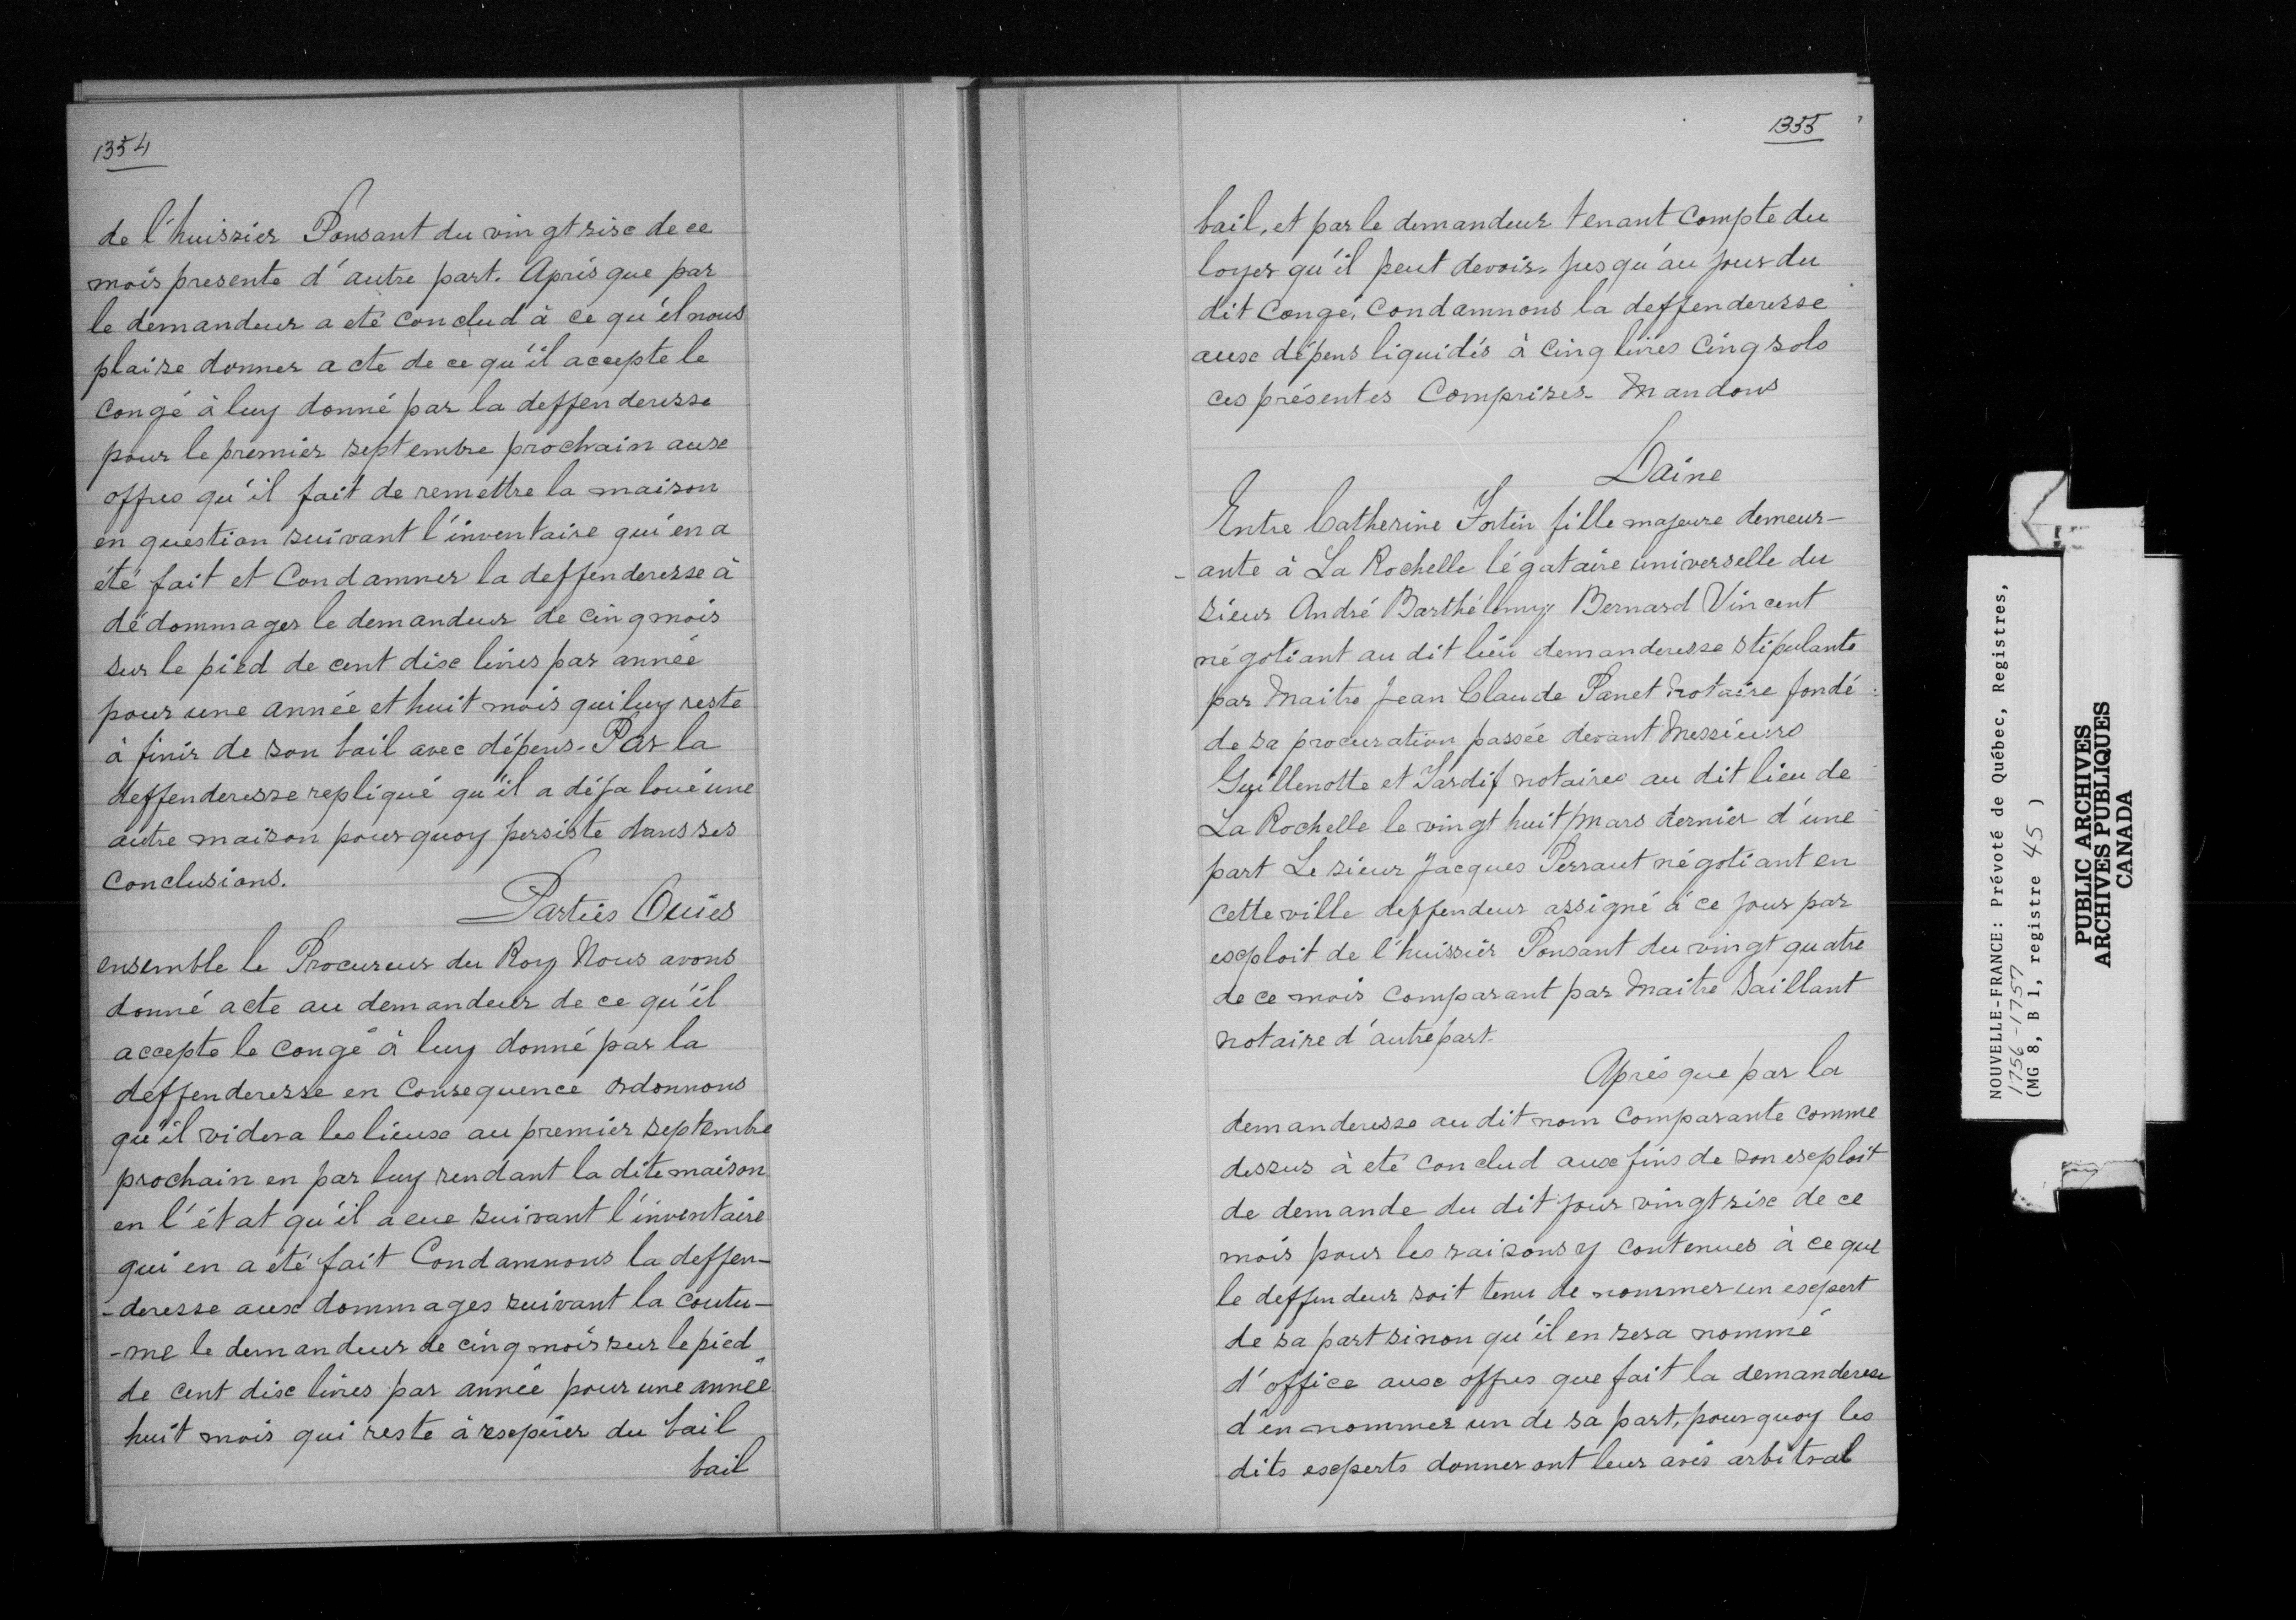 1354
de l'huissier Ponsant du vingt six de ce
mois presente d'autre part. Après que par
le demandeur a eté conclud à ce qu'il nous
plaise donner acte de ce qu'il accepte le
congé à luy donné par la deffenderesse
pour le premier septembre prochain aux
offres qu'il fait de remettre la maison
en question suivant l'inventaire qui en a
été fait et Condamner la deffenderesse à
dédommager le demandeur de cinq mois
sur le pied de cent dix livres par année
pour une année et huit mois qui luy reste
à finir de son bail avec dépens. Par la
deffenderesse repliqué qu'il a déja loué une
autre maison pourquoy persiste dans ses
conclusions.
Parties Ouies
ensemble le Procureur du Roy Nous avons
donné acte au demandeur de ce qu'il
accepte le congé à luy donné par la
deffenderesse en consequence ordonnons
qu'il videra les lieux au premier septembre
prochain en par luy rendant la dite maison
en l'état qu'il a eue suivant l'inventaire
qui en a été fait Condamnons la deffen-
-deresse aux dommages suivant la coutu-
-me le demandeur de cinq mois sur le pied
de cent dix livres par année pour une année
huit mois qui reste à expirer du bail
bail
1355
bail, et par le demandeur tenant compte du
loyer qu'il peut devoir jusqu'au jour du
dit congé, condamnons la deffenderesse
aux dépens liquidés à cinq livres cinq sols
ces présentes Comprises. Mandons
Daine
Entre Catherine Fortin fille majeure demeur-
-ante à La Rochelle légataire universelle du
sieur André Barthélemy Bernard Vincent
négotiant au dit lieu demanderesse stipulante
par Maitre Jean Claude Panet Notaire fondé
de sa procuration passée devant Messieurs
Guillenotte et Tardif notaires au dit lieu de
La Rochelle le vingt huit mars dernier d'une
part Le sieur Jacques Perraut négotiant en
cette ville deffendeur assigné à ce jour par
exploit de l'huissier Ponsant du vingt quatre
de ce mois comparant par Maitre Saillant
notaire d'autre part.
Après que par la
demanderesse au dit nom comparante comme
dessus à eté conclud aux fins de son exploit
de demande du dit jour vingt six de ce
mois pour les raisons y contenues à ce que
le deffendeur soit tenu de nommer un expert
de sa part sinon qu'il en sera nommé
d'office aux offres que fait la demanderesse
d'en nommer un de sa part, pourquoy les
dits experts donneront leur avis arbitral
NOUVELLE-FRANCE: Prévoté de Québec, Registres,
1756-1757
(MG 8, B 1, registre 45 )
PUBLIC ARCHIVES
ARCHIVES PUBLIQUES
CANADA